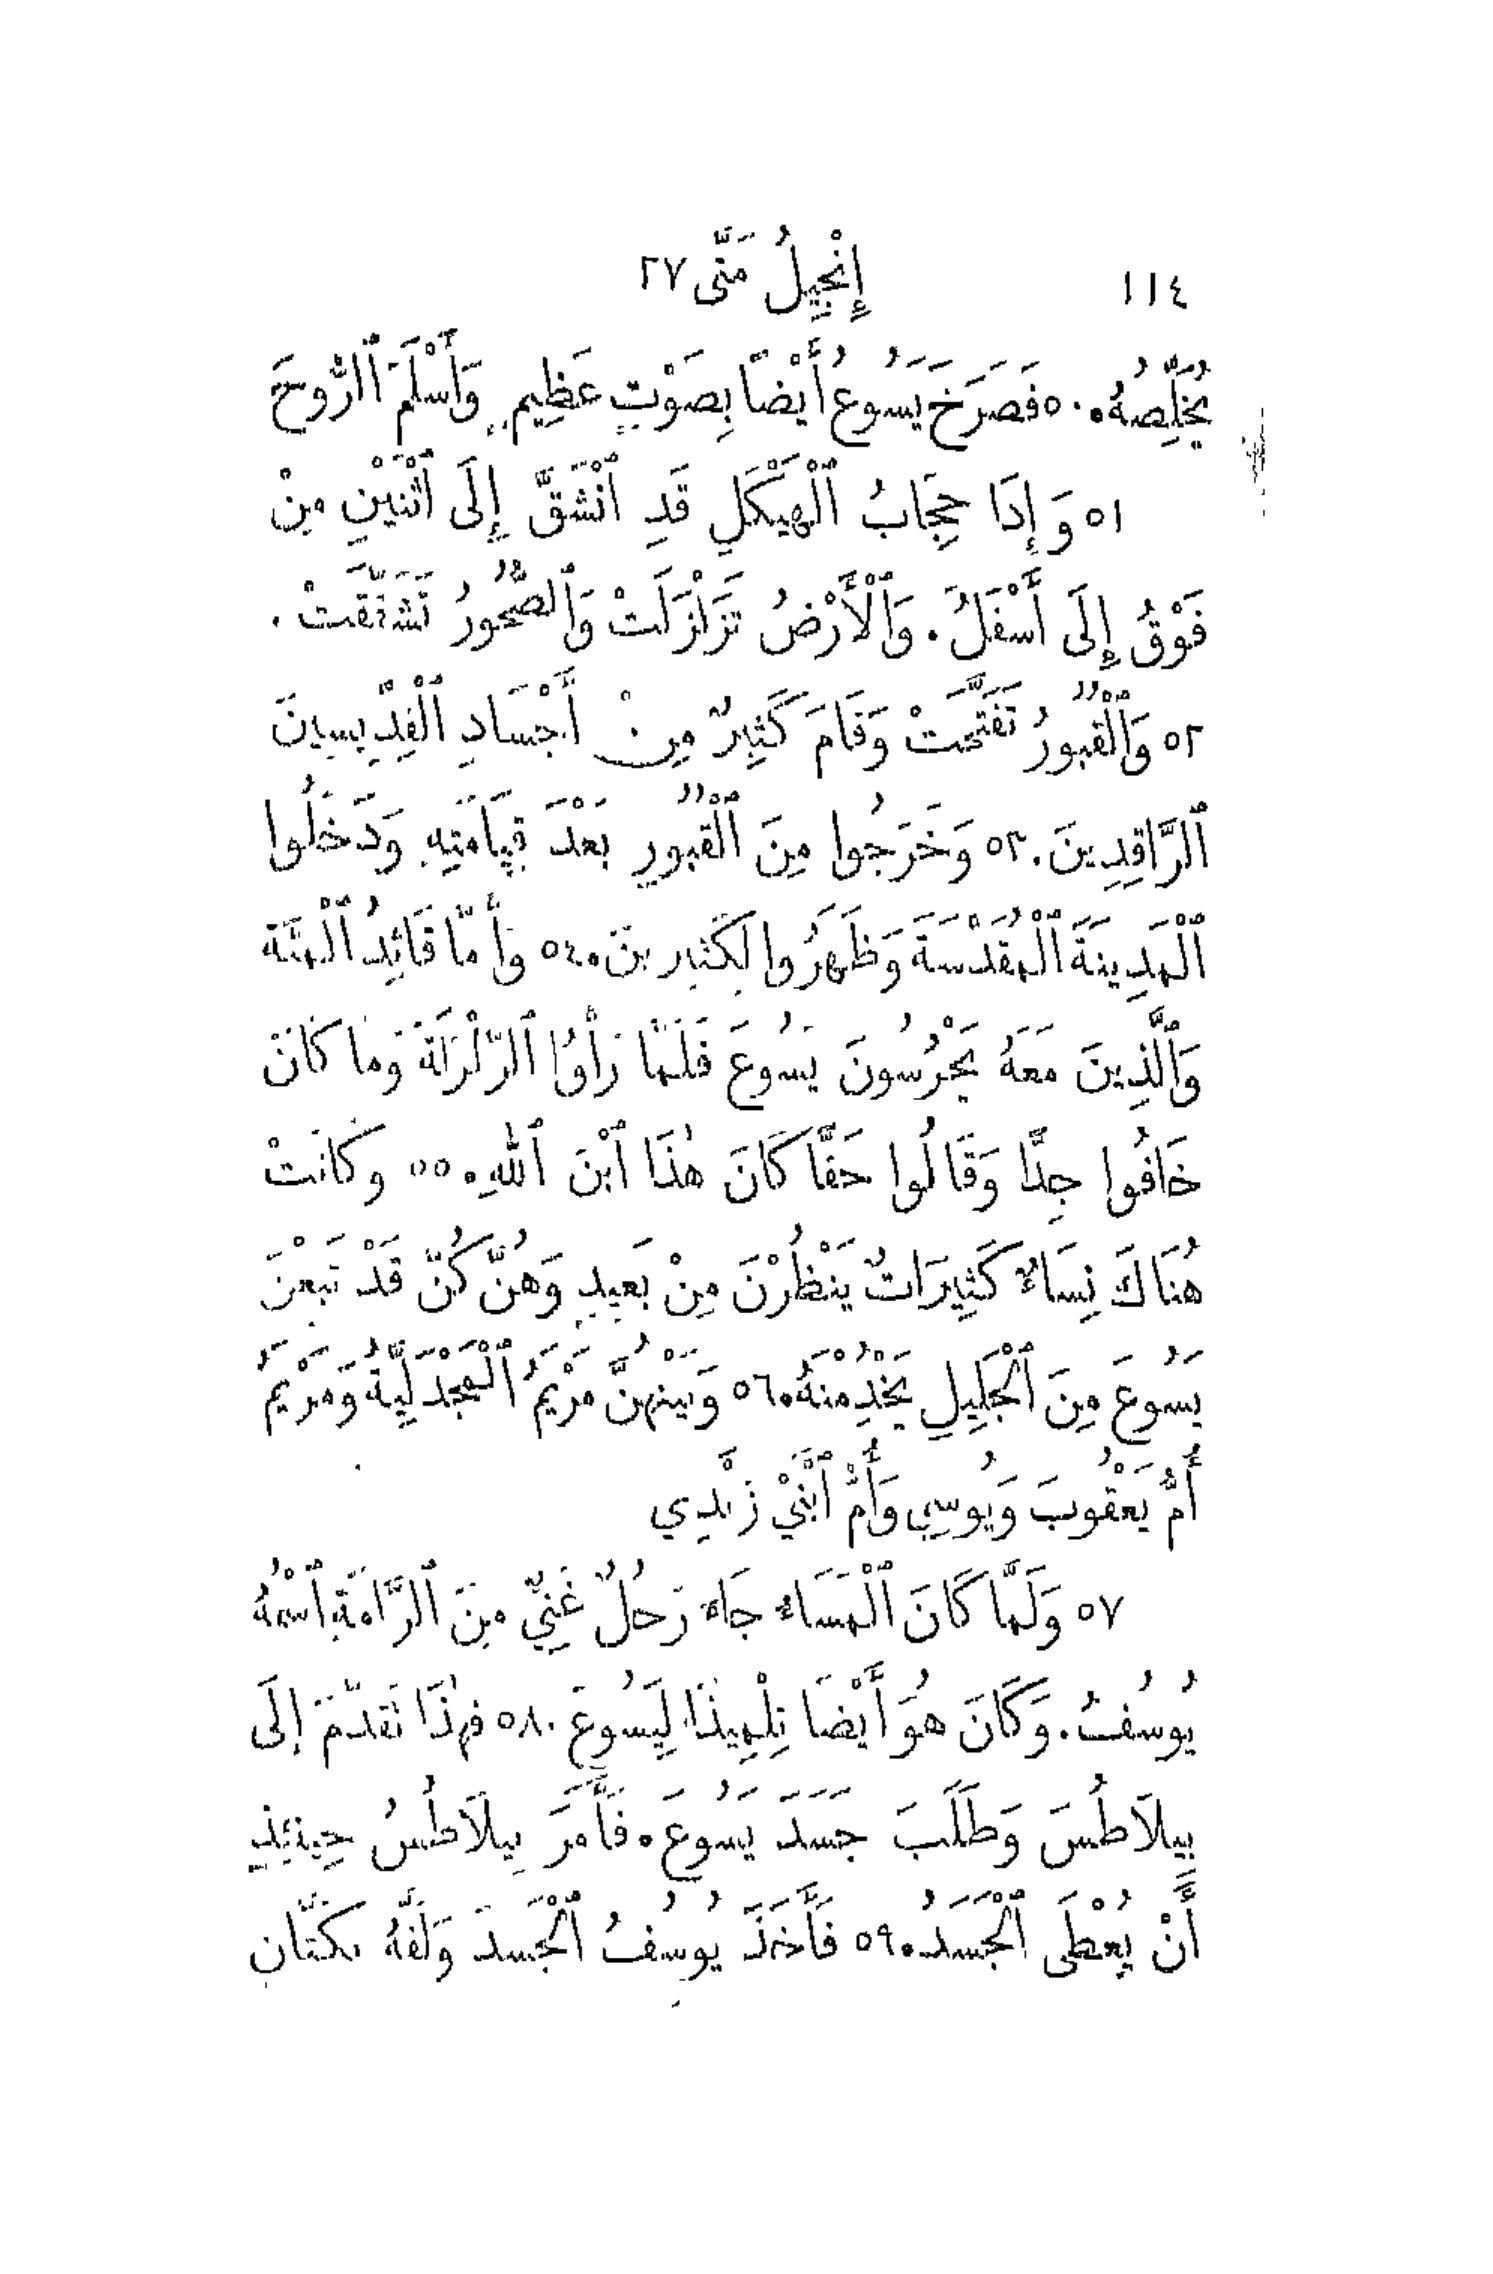 ١١٤ إِنْجِيلُ مَتَّى ٢٧
يُخَلِّصُهُ. ٥٠ فَصَرَخَ يَسُوعُ أَيْضًا بِصَوْتٍ عَظِيمٍ وَأَسْلَمَ ٱلرُّوحَ
٥١ وَإِذَا حِجَابُ ٱلْهَيْكَلِ قَدِ ٱنْشَقَّ إِلَى ٱثْنَيْنِ مِنْ
فَوْقُ إِلَى أَسْفَلُ. وَٱلْأَرْضُ تَزَلْزَلَتْ وَٱلصُّخُورُ تَشَقَّقَتْ.
٥٢ وَٱلْقُبُورُ تَفَتَّحَتْ وَقَامَ كَثِيرٌ مِنْ أَجْسَادِ ٱلْقِدِّيسِينَ
ٱلرَّاقِدِينَ. ٥٣ وَخَرَجُوا مِنَ ٱلْقُبُورِ بَعْدَ قِيَامَتِهِ وَدَخَلُوا
ٱلْمَدِينَةَ ٱلْمُقَدَّسَةَ وَظَهَرُوا لِكَثِيرِينَ. ٥٤ وَأَمَّا قَائِدُ ٱلْمِئَةِ
وَٱلَّذِينَ مَعَهُ يَحْرُسُونَ يَسُوعَ فَلَمَّا رَأَوُا ٱلزَّلْزَلَةَ وَمَا كَانَ
خَافُوا جِدًّا وَقَالُوا حَقًّا كَانَ هٰذَا ٱبْنَ ٱللهِ. ٥٥ وَكَانَتْ
هُنَاكَ نِسَاءٌ كَثِيرَاتٌ يَنْظُرْنَ مِنْ بَعِيدٍ وَهُنَّ كُنَّ قَدْ تَبِعْنَ
يَسُوعَ مِنَ ٱلْجَلِيلِ يَخْدُِمْنَهُ. ٥٦ وَبَيْنَهُنَّ مَرْيَمُ ٱلْمَجْدَلِيَّةُ وَمَرْيَمُ
أُمُّ يَعْقُوبَ وَيُوسِي وَأُمُّ ٱبْنَيْ زَبْدِي
٥٧ وَلَمَّا كَانَ ٱلْمَسَاءُ جَاءَ رَجُلٌ غَنِيٌّ مِنَ ٱلرَّامَةِ ٱسْمُهُ
يُوسُفُ. وَكَانَ هُوَ أَيْضًا تِلْمِيذًا لِيَسُوعَ. ٥٨ فَهٰذَا تَقَدَّمَ إِلَى
بِيلَاطُسَ وَطَلَبَ جَسَدَ يَسُوعَ. فَأَمَرَ بِيلَاطُسُ حِينَئِذٍ
أَنْ يُعْطَى ٱلْجَسَدُ. ٥٩ فَأَخَذَ يُوسُفُ ٱلْجَسَدَ وَلَفَّهُ بِكَتَّانٍ